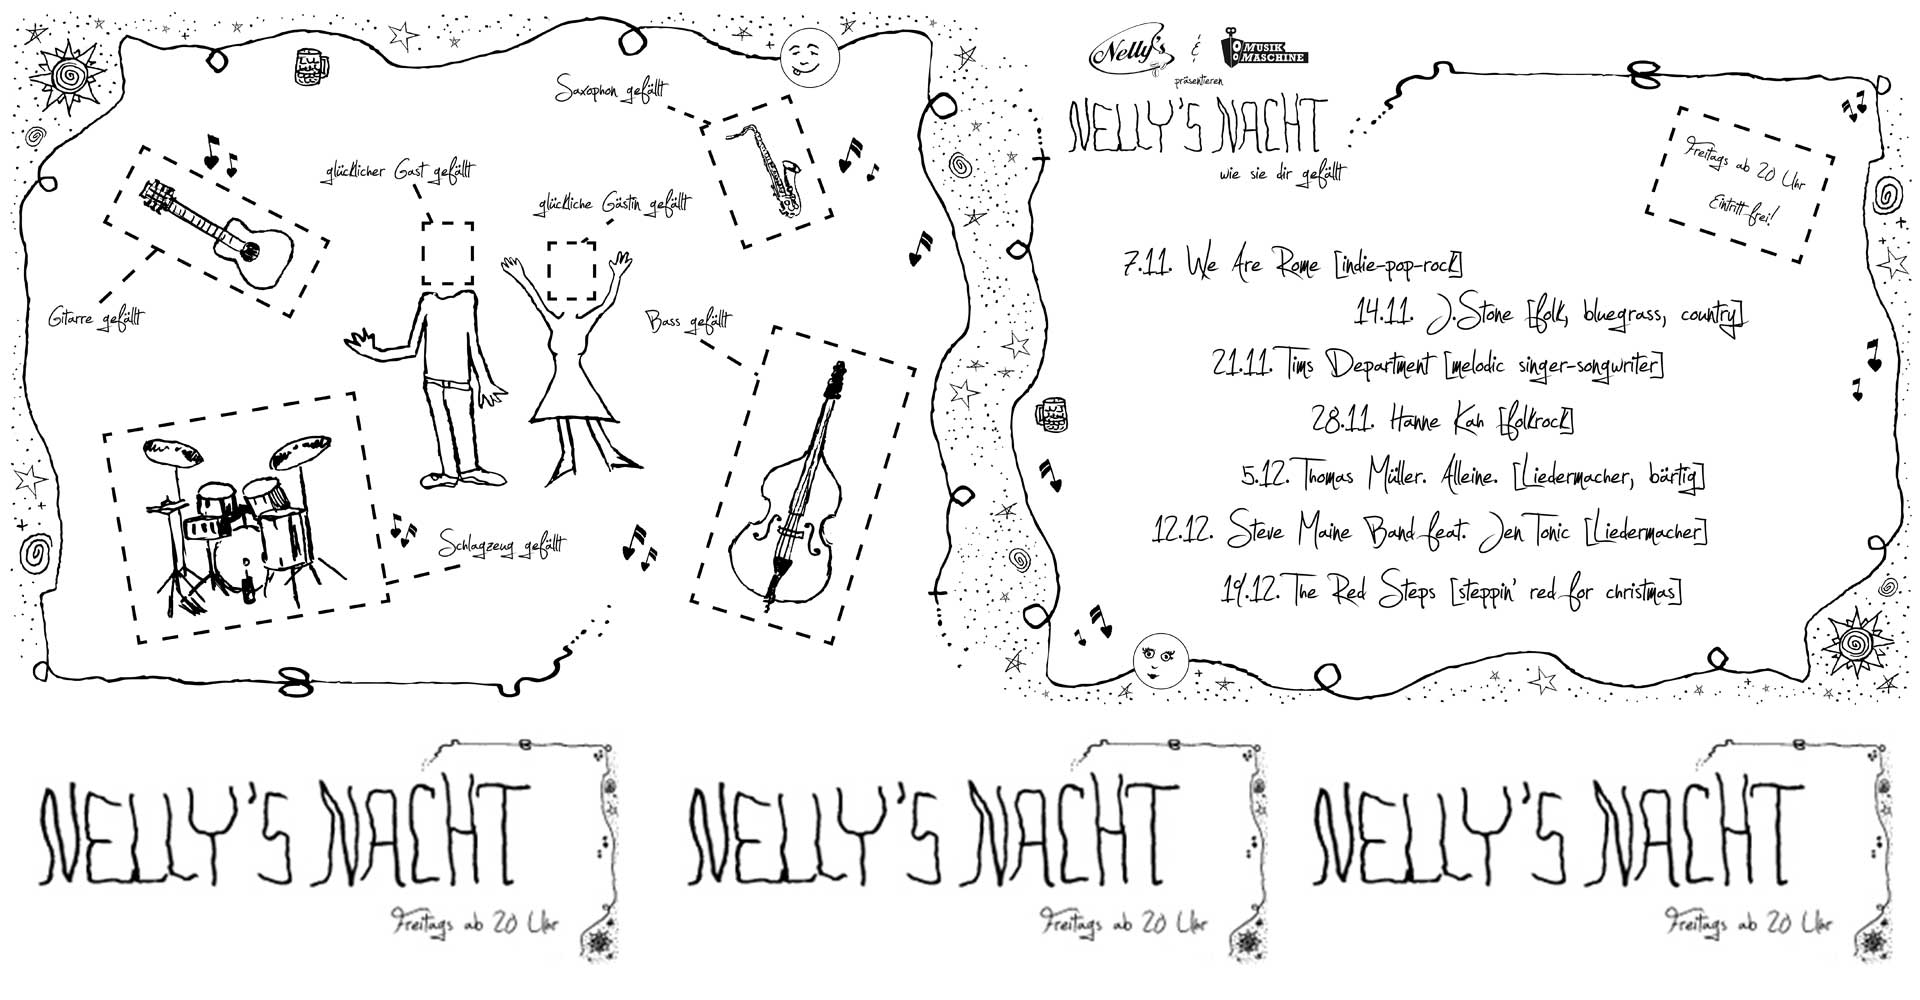 Saxophon gefällt
glücklicher Gast gefällt
glückliche Gästin gefällt
Gitarre gefällt
Bass gefällt
Schlagzeug gefällt
Nelly's & MUSIK MASCHINE
präsentieren
NELLY'S NACHT
wie sie dir gefällt
Freitags ab 20 Uhr
Eintritt frei!
7.11. We Are Rome [indie-pop-rock]
14.11. J.Stone [folk, bluegrass, country]
21.11. Tims Department [melodic singer-songwriter]
28.11. Hanne Kah [folkrock]
5.12. Thomas Müller. Alleine. [Liedermacher, bärtig]
12.12. Steve Maine Band feat. Jen Tonic [Liedermacher]
19.12. The Red Steps [steppin' red for christmas]
NELLY'S NACHT
Freitags ab 20 Uhr
NELLY'S NACHT
Freitags ab 20 Uhr
NELLY'S NACHT
Freitags ab 20 Uhr